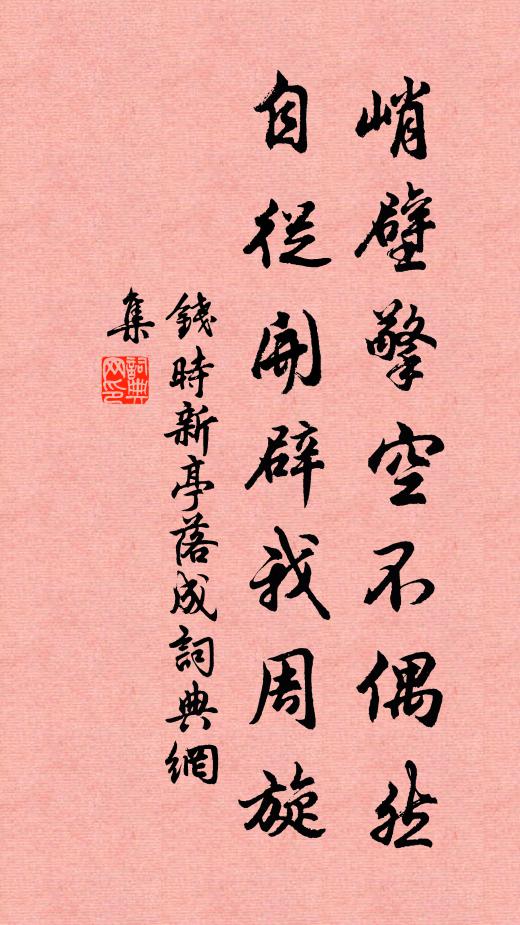 峭壁擎空不偶然
自從開辟我周旋
錢時新亭落成詞典網
集
詞典網印